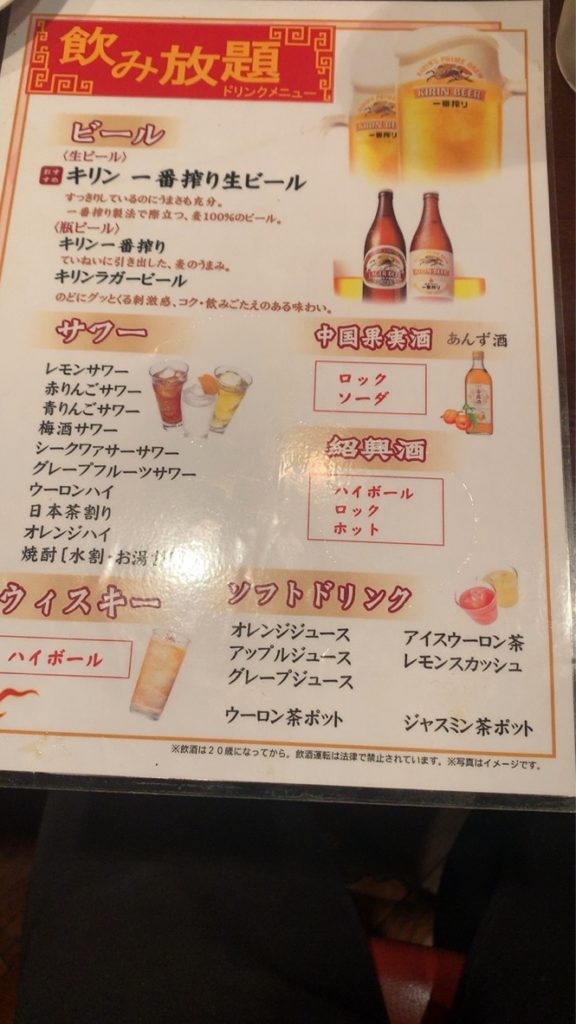 飲み放題
ドリンクメニュー
KIRIN BEER
一番搾り
KIRIN BEER
一番搾り
ビール
〈生ビール〉
おすすめ キリン 一番搾り生ビール
すっきりしているのにうまさも充分。
一番搾り製法で際立つ、麦100%のビール。
〈瓶ビール〉
キリン一番搾り
ていねいに引き出した、麦のうまみ。
キリンラガービール
のどにグッとくる刺激感、コク・飲みごたえのある味わい。
サワー
レモンサワー
赤りんごサワー
青りんごサワー
梅酒サワー
シークワァサーサワー
グレープフルーツサワー
ウーロンハイ
日本茶割り
オレンジハイ
焼酎〔水割・お湯
中国果実酒 あんず酒
ロック
ソーダ
紹興酒
ハイボール
ロック
ホット
ウィスキー
ハイボール
ソフトドリンク
オレンジジュース
アップルジュース
グレープジュース
ウーロン茶ポット
アイスウーロン茶
レモンスカッシュ
ジャスミン茶ポット
※飲酒は20歳になってから。飲酒運転は法律で禁止されています。※写真はイメージです。